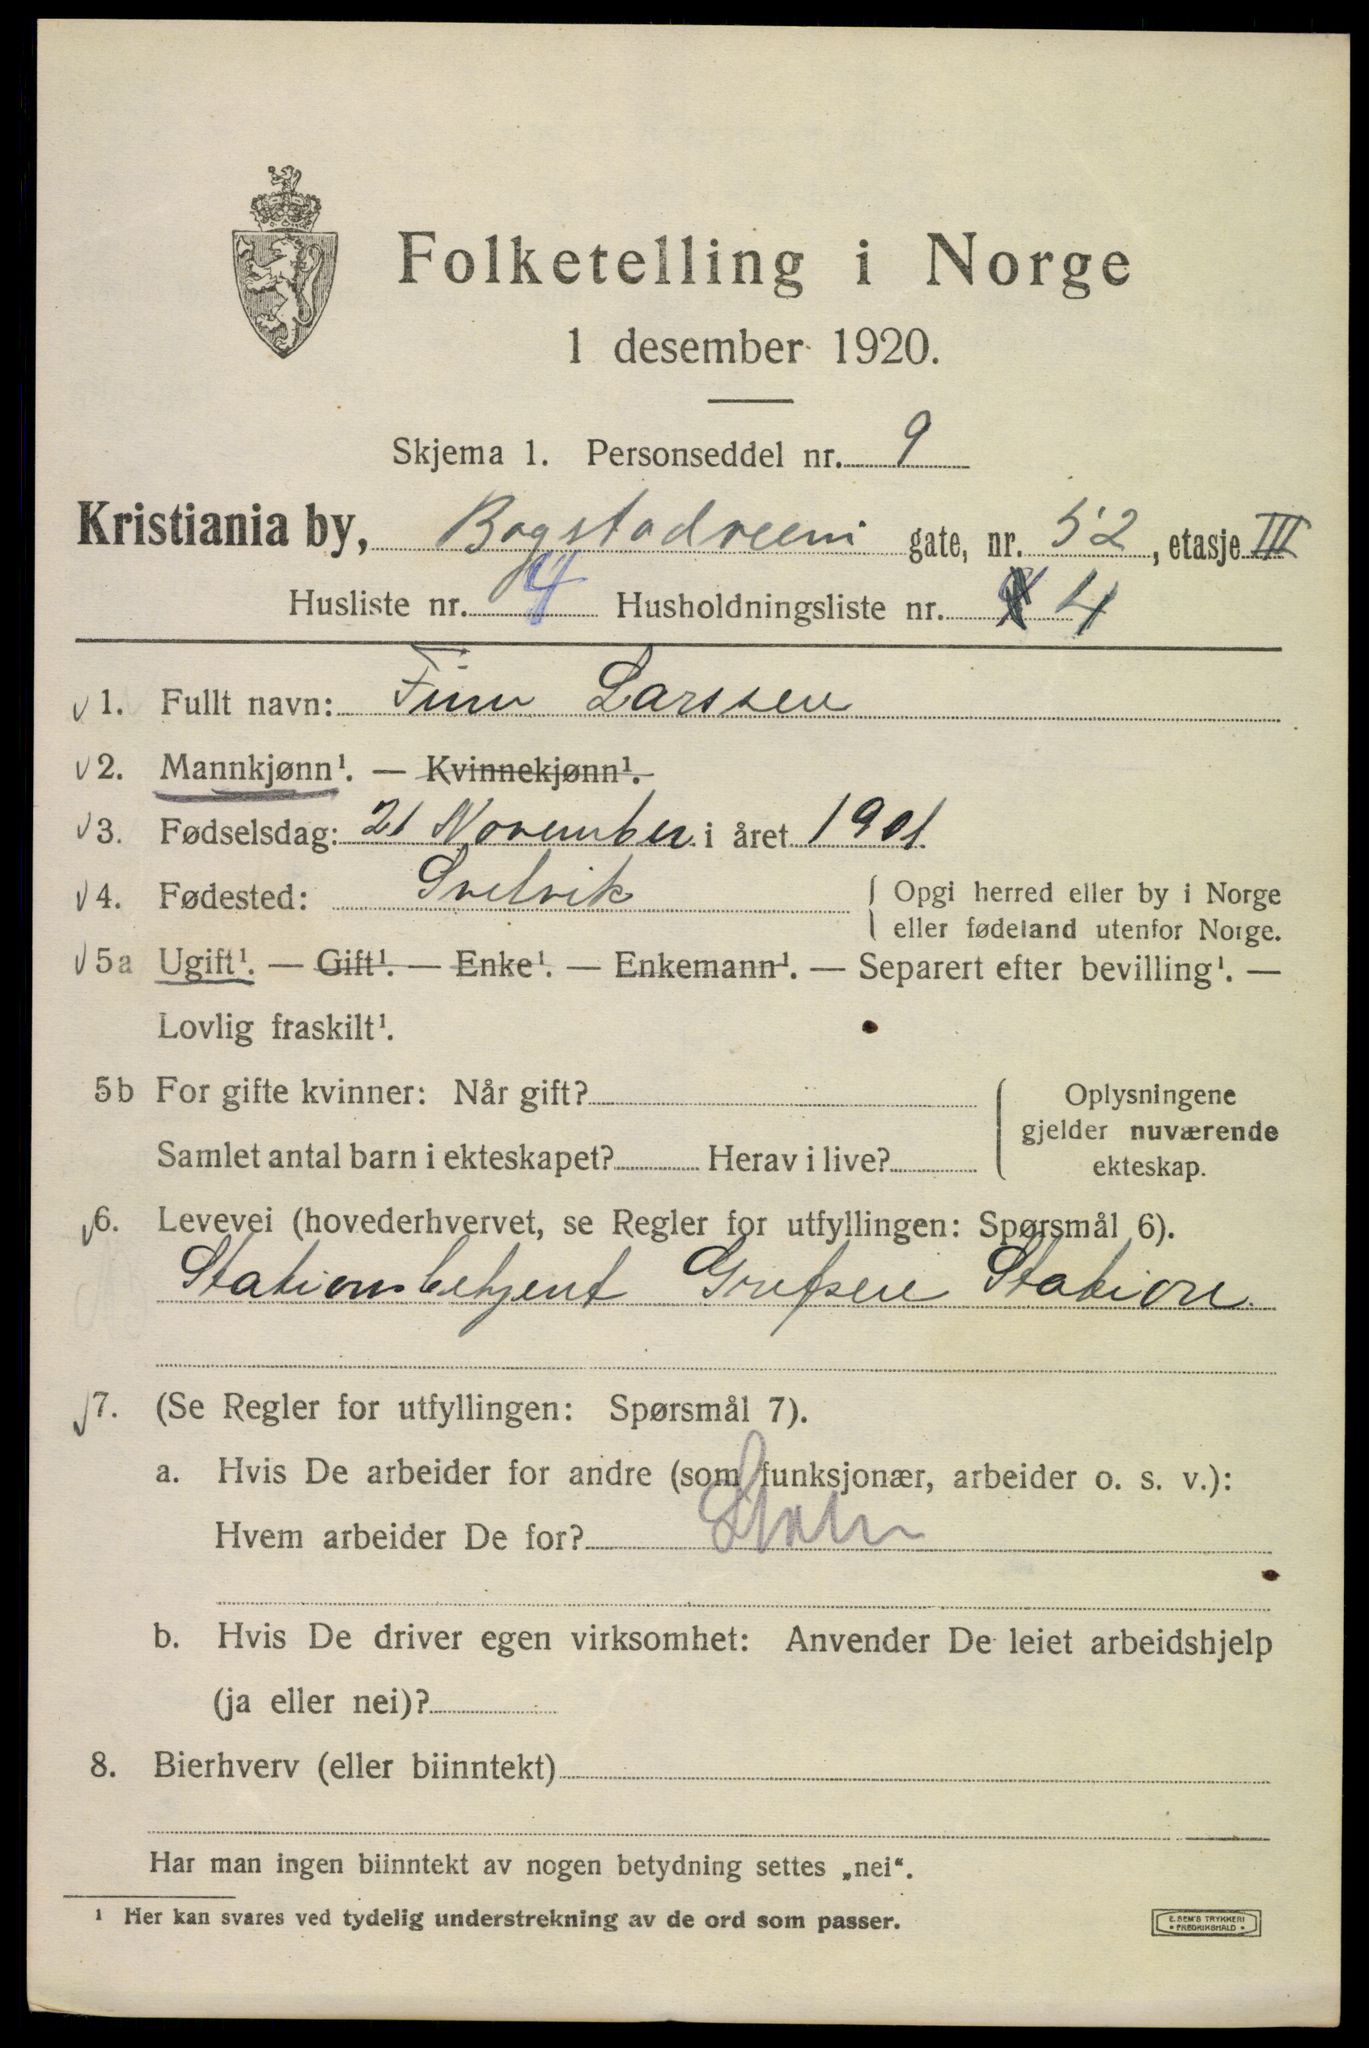 Folketelling i Norge
1 desember 1920.
Skjema 1. Personseddel nr. 9
Kristiania by, Bogstadveein gate, nr. 52, etasje III
Husliste nr. 4 Husholdningsliste nr. 4
1. Fullt navn: Finn Larssen
2. Mannkjønn¹. — Kvinnekjønn¹.
3. Fødselsdag: 21 November i året 1901.
4. Fødested: Svelvik { Opgi herred eller by i Norge
eller fødeland utenfor Norge.
5a Ugift¹. — Gift¹. — Enke¹. — Enkemann¹. — Separert efter bevilling¹. —
Lovlig fraskilt¹.
5b For gifte kvinner: Når gift? { Oplysningene
gjelder nuværende
Samlet antal barn i ekteskapet? Herav i live?
ekteskap.
6. Levevei (hovederhvervet, se Regler for utfyllingen: Spørsmål 6).
Stationsbetjent Grefsen Station.
7. (Se Regler for utfyllingen: Spørsmål 7).
a. Hvis De arbeider for andre (som funksjonær, arbeider o. s. v.):
Hvem arbeider De for? Staten
b. Hvis De driver egen virksomhet: Anvender De leiet arbeidshjelp
(ja eller nei)?
8. Bierhverv (eller biinntekt)
Har man ingen biinntekt av nogen betydning settes „nei“.
¹ Her kan svares ved tydelig understrekning av de ord som passer.
E. SEM'S TRYKKERI
• FREDRIKSHALD •